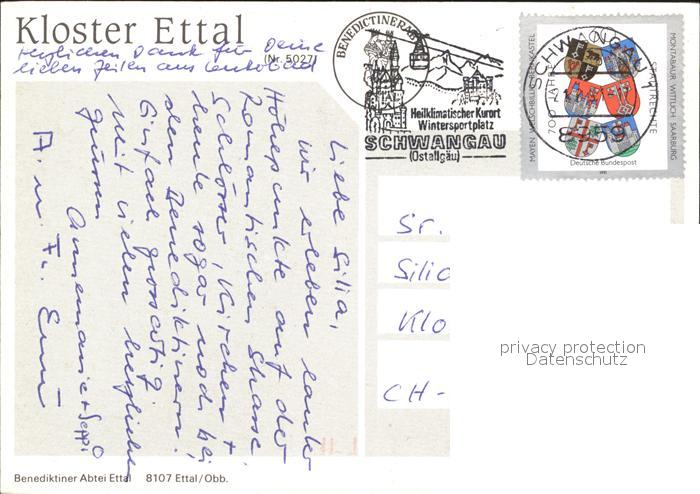 Kloster Ettal
(Nr. 5027)
Herzlichen Dank für Deine
lieben Zeilen aus
Liebe Silia,
wir erleben lauter
Höhepunkte auf der
Romantischen Strasse.
Schlösser, Kirchen +
heute sogar noch bei
den Benediktinern.
Einfach grossartig.
Mit vielen herzlichen
Grüssen
Annemarie + Seppi
A. u. Fr.
BENEDICTINERAB
Heilklimatischer Kurort
Wintersportplatz
SCHWANGAU
(Ostallgäu)
SCHWANGAU 1
MAYEN MONTABAUR WITTLICH SAARBURG
700 JAHRE STADTRECHTE
Deutsche Bundespost
Sr.
Silic
Klo
CH -
privacy protection
Datenschutz
Benediktiner Abtei Ettal 8107 Ettal/Obb.